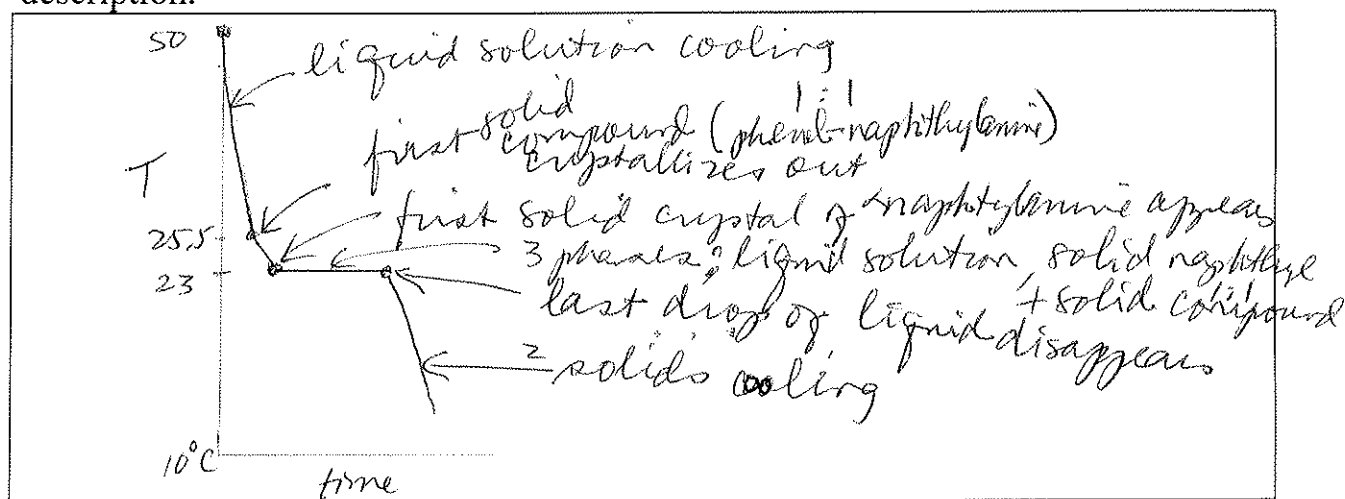 description.
50
liquid solution cooling
1:1
first solid compound (phenol-naphthylamine)
crystallizes out
T
first solid crystal of naphtylamine appears
25.5
3 phases: liquid solution, solid naphthyl
23
+ solid 1:1 compound
last drop of liquid disappears
2 solids cooling
10°C
time